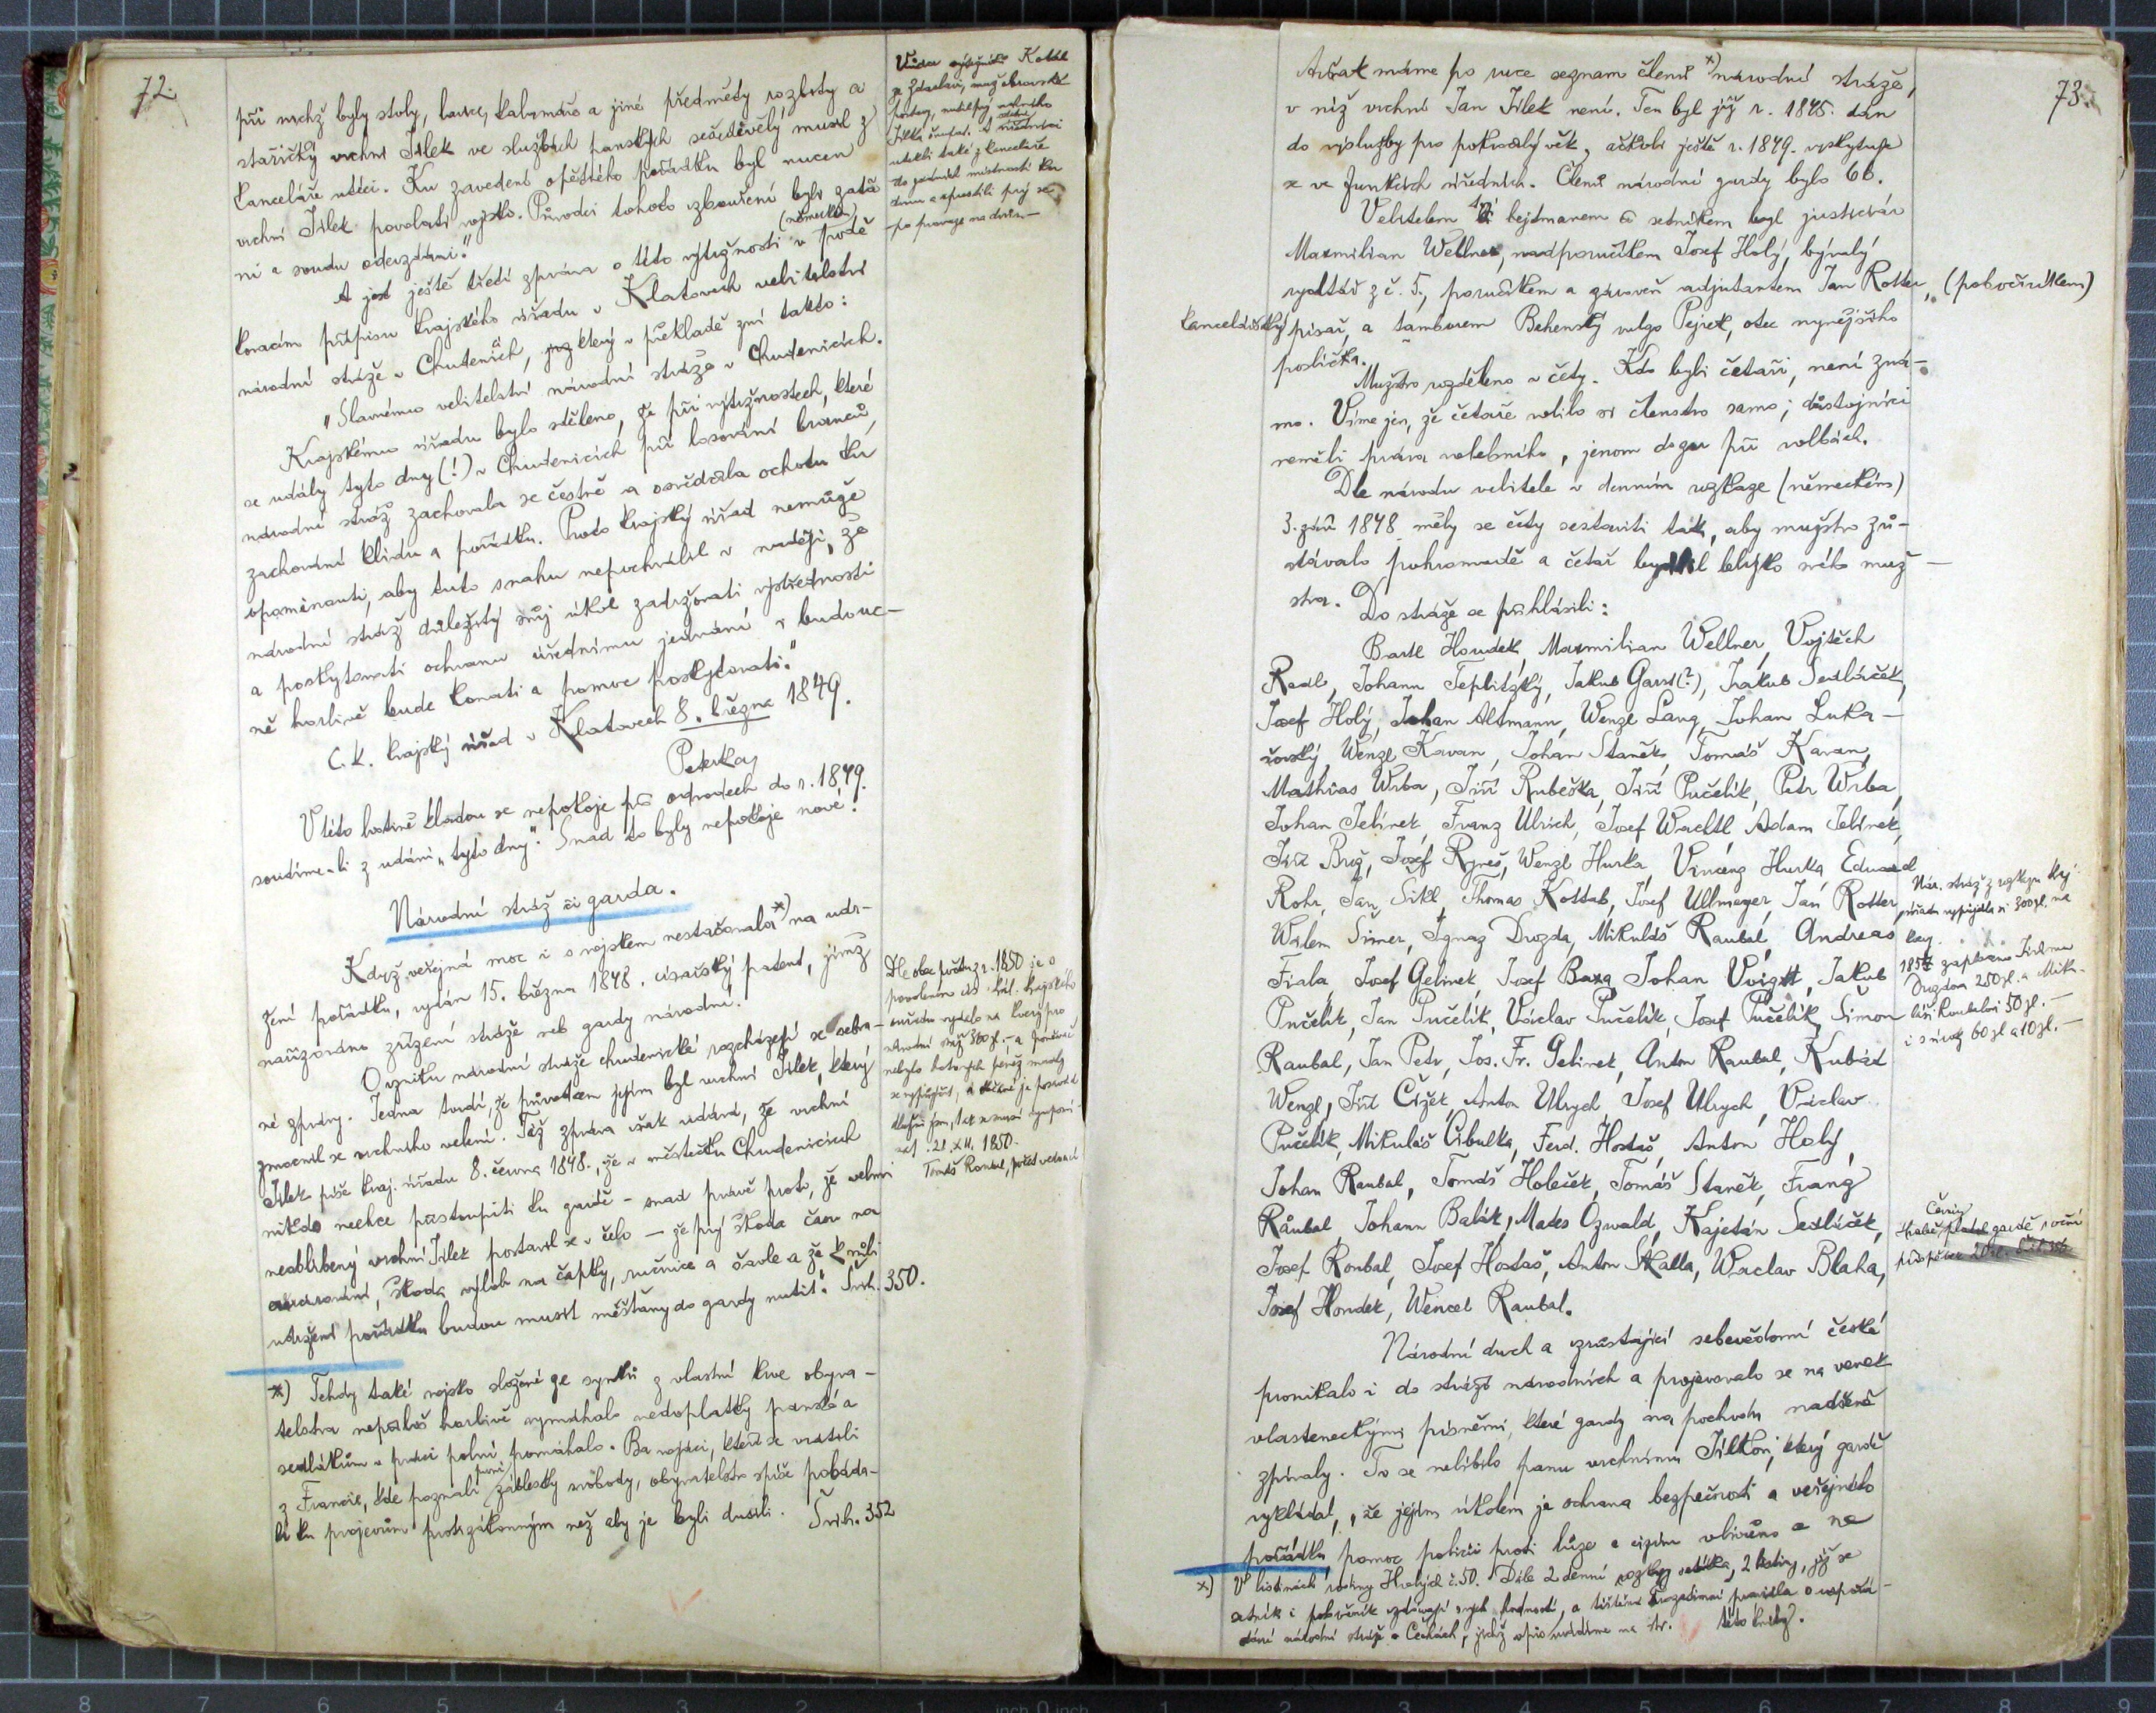 72.
při nichž byly stoly, lavice, kalamáře a jiné předměty rozbity a
stařičký vrchní Jílek ve službách panských sešedivělý musil z
kanceláře utéci. Ku zavedení opětného pořádku byl nucen
vrchní Jílek povolati vojsko. Původci tohoto zbouření byli zatčeni
a soudu odevzdáni."
A jest ještě třetí zpráva o této výtržnosti v podě-
(německém)
kovacím přípisu krajského úřadu v Klatovech velitelství
národní stráže v Chudenicích, který v překladě zní takto:
"Slavnému velitelství národní stráže v Chudenicích.
Krajskému úřadu bylo sděleno, že při výtržnostech, které
se udály tyto dny (!) v Chudenicích při losování branců,
národní stráž zachovala se čestně a osvědčila ochotu ku
zachování klidu a pořádku. Proto krajský úřad nemůže
opomenouti, aby tuto snahu nepochválil v naději, že
národní stráž důležitý svůj úkol zadržovati výstřednosti
a poskytovati ochranu úřednímu jednání v budouc-
ně horlivě bude konati a pomoc poskytovati."
C. k. krajský úřad v Klatovech 8. března 1849.
Peterka
V této listině kladou se nepokoje při odvodech do r. 1849.
soudíme-li z udání "tyto dny". Snad to byly nepokoje nové?
Národní stráž či garda.
Když veřejná moc i s vojskem nestačovala x) na udr-
žení pořádku, vydán 15. března 1848. císařský patent, jímž
nařizováno zřízení stráže neb gardy národní.
O vzniku národní stráže chudenické rozcházejí se sebra-
né zprávy. Jedna tvrdí, že původcem jejím byl vrchní Jílek, který
zmocnil se vrchního velení. Táž zpráva však udává, že vrchní
Jílek píše kraj. úřadu 8. června 1848., že v městečku Chudenicích
nikdo nechce přistoupiti ku gardě - snad právě proto, že velmi
neoblíbený vrchní Jílek postavil se v čelo - že prý škoda času na
škoda výloh na čapky, ručnice a šavle a že k vůli
udržení pořádku budou musit měšťany do gardy nutit". Švih. 350.
x) Tehdy také vojsko složené ze synků z vlastní krve obyva-
telstva nepříliš horlivě vymáhalo nedoplatky panské a
sedlákům v práci polní pomáhalo. Ba vojáci, kteří se vrátili
z Francie, kde poznali první záblesky svobody, obyvatelstvo spíše pobáda-
li ku projevům protizákonným než aby je byli dusili. Švih. 352
Vůdce výtržníků Kotál
ze Zdaslavi, muž obrovské
postavy,
utekli také z kanceláře
Dle obec. počtu z r. 1850 je s
povolením
nebylo hotových peněz
21. XII. 1850.
73.
Avšak máme po ruce seznam členů x) národní stráže,
v níž vrchní Jan Jílek není. Ten byl již r. 1845. dán
do výslužby pro pokročilý věk, ačkoli ještě r. 1849. vyskytuje
se ve funkcích úředních. Členů národní gardy bylo 66.
Velitelem čili hejtmanem a setníkem byl justiciár
Maxmilian Wellner, nadporučíkem Josef Holý, bývalý
rychtář z č. 5., poručíkem a zároveň adjutantem Jan Rotter, (pobočníkem)
kancelářský písař, a tamborem Behenský vulgo Pejrek, otec nynějšího
poslíčka.
Mužstvo rozděleno v čety. Kdo byli četaři, není zná-
mo. Víme jen, že četaře volilo si členstvo samo; důstojníci
neměli práva volebního, jenom dozor při volbách.
Dle návodu velitele v denním rozkaze (německém)
3. září 1848 měly se čety sestaviti tak, aby mužstvo zů-
stávalo pohromadě a četař bydlil blízko svého muž-
stva.
Do stráže se přihlásili:
Bartl Houdek, Maxmilian Wellner, Vojtěch
Redl, Johann Teplitzký, Jakub Garst(?), Jakub Sedláček,
Josef Holý, Johan Altmann, Wenzl Lang, Johan Luka-
řovský, Wenzl Kavan, Johan Staněk, Tomáš Kavan,
Mathias Wrba, Jiří Rubeška, Jiří Pučelík, Petr Wrba,
Johan Jelínek, Franz Ulrich, Josef Wachtl, Adam Jelínek,
Jiří Brož, Josef Ryneš, Wenzl Hurka, Vincenz Hurka, Eduard
Rohr, Jan Sikl, Thomas Kottab, Josef Ullmayer, Jan Rotter,
Wilem Šimer, Ignaz Drozda, Mikuláš Raubal, Andreas
Fiala, Josef Gelinek, Josef Baxa, Johan Voigtt, Jakub
Pučelík, Jan Pučelík, Václav Pučelík, Josef Pučelík, Šimon
Raubal, Jan Petr, Jos. Fr. Gelinek, Anton Raubal, Kubát
Wenzl, Jiří Čížek, Anton Ulrych, Josef Ulrych, Václav
Pučelík, Mikuláš Cibulka, Ferd. Hostaš, Anton Holý,
Johan Raubal, Tomáš Holeček, Tomáš Staněk, Franz
Raubal, Johann Balák, Mates Ozwald, Kajetán Sedláček,
Josef Roubal, Josef Hostaš, Anton Skalla, Waclav Blaha,
Josef Houdek, Wencel Raubal.
Národní duch a vzrůstající sebevědomí české
pronikalo i do stráží národních a projevovalo se na venek
vlasteneckými písněmi, které gardy na pochodu nadšeně
zpívaly. To se nelíbilo panu vrchnímu Jílkovi, který gardě
vykládal, že jejím úkolem je ochrana bezpečnosti a veřejného
pořádku, pomoc policii proti lůze a cizím vlivům a ne
x) V listinách rodiny Hralých č. 50. Dále 2 denní rozkazy setníka, 2 listiny, jíž se
setník i pobočník vzdávají svých hodností, a tištěná prozatímní pravidla o uspořá-
dání národní stráže v Čechách, jichž opis uvádíme na str. této knihy.
Nár. stráž z rozkazu kraj.
úřadu vypůjčila si 300 zl. na
1854 zaplaceno
Drozdovi 250 zl. a Miku-
láši Roubalovi 50 zl. -
i s úroky 60 zl a 10 zl. -
Černín
hrabě platil gardě roční
příspěvek